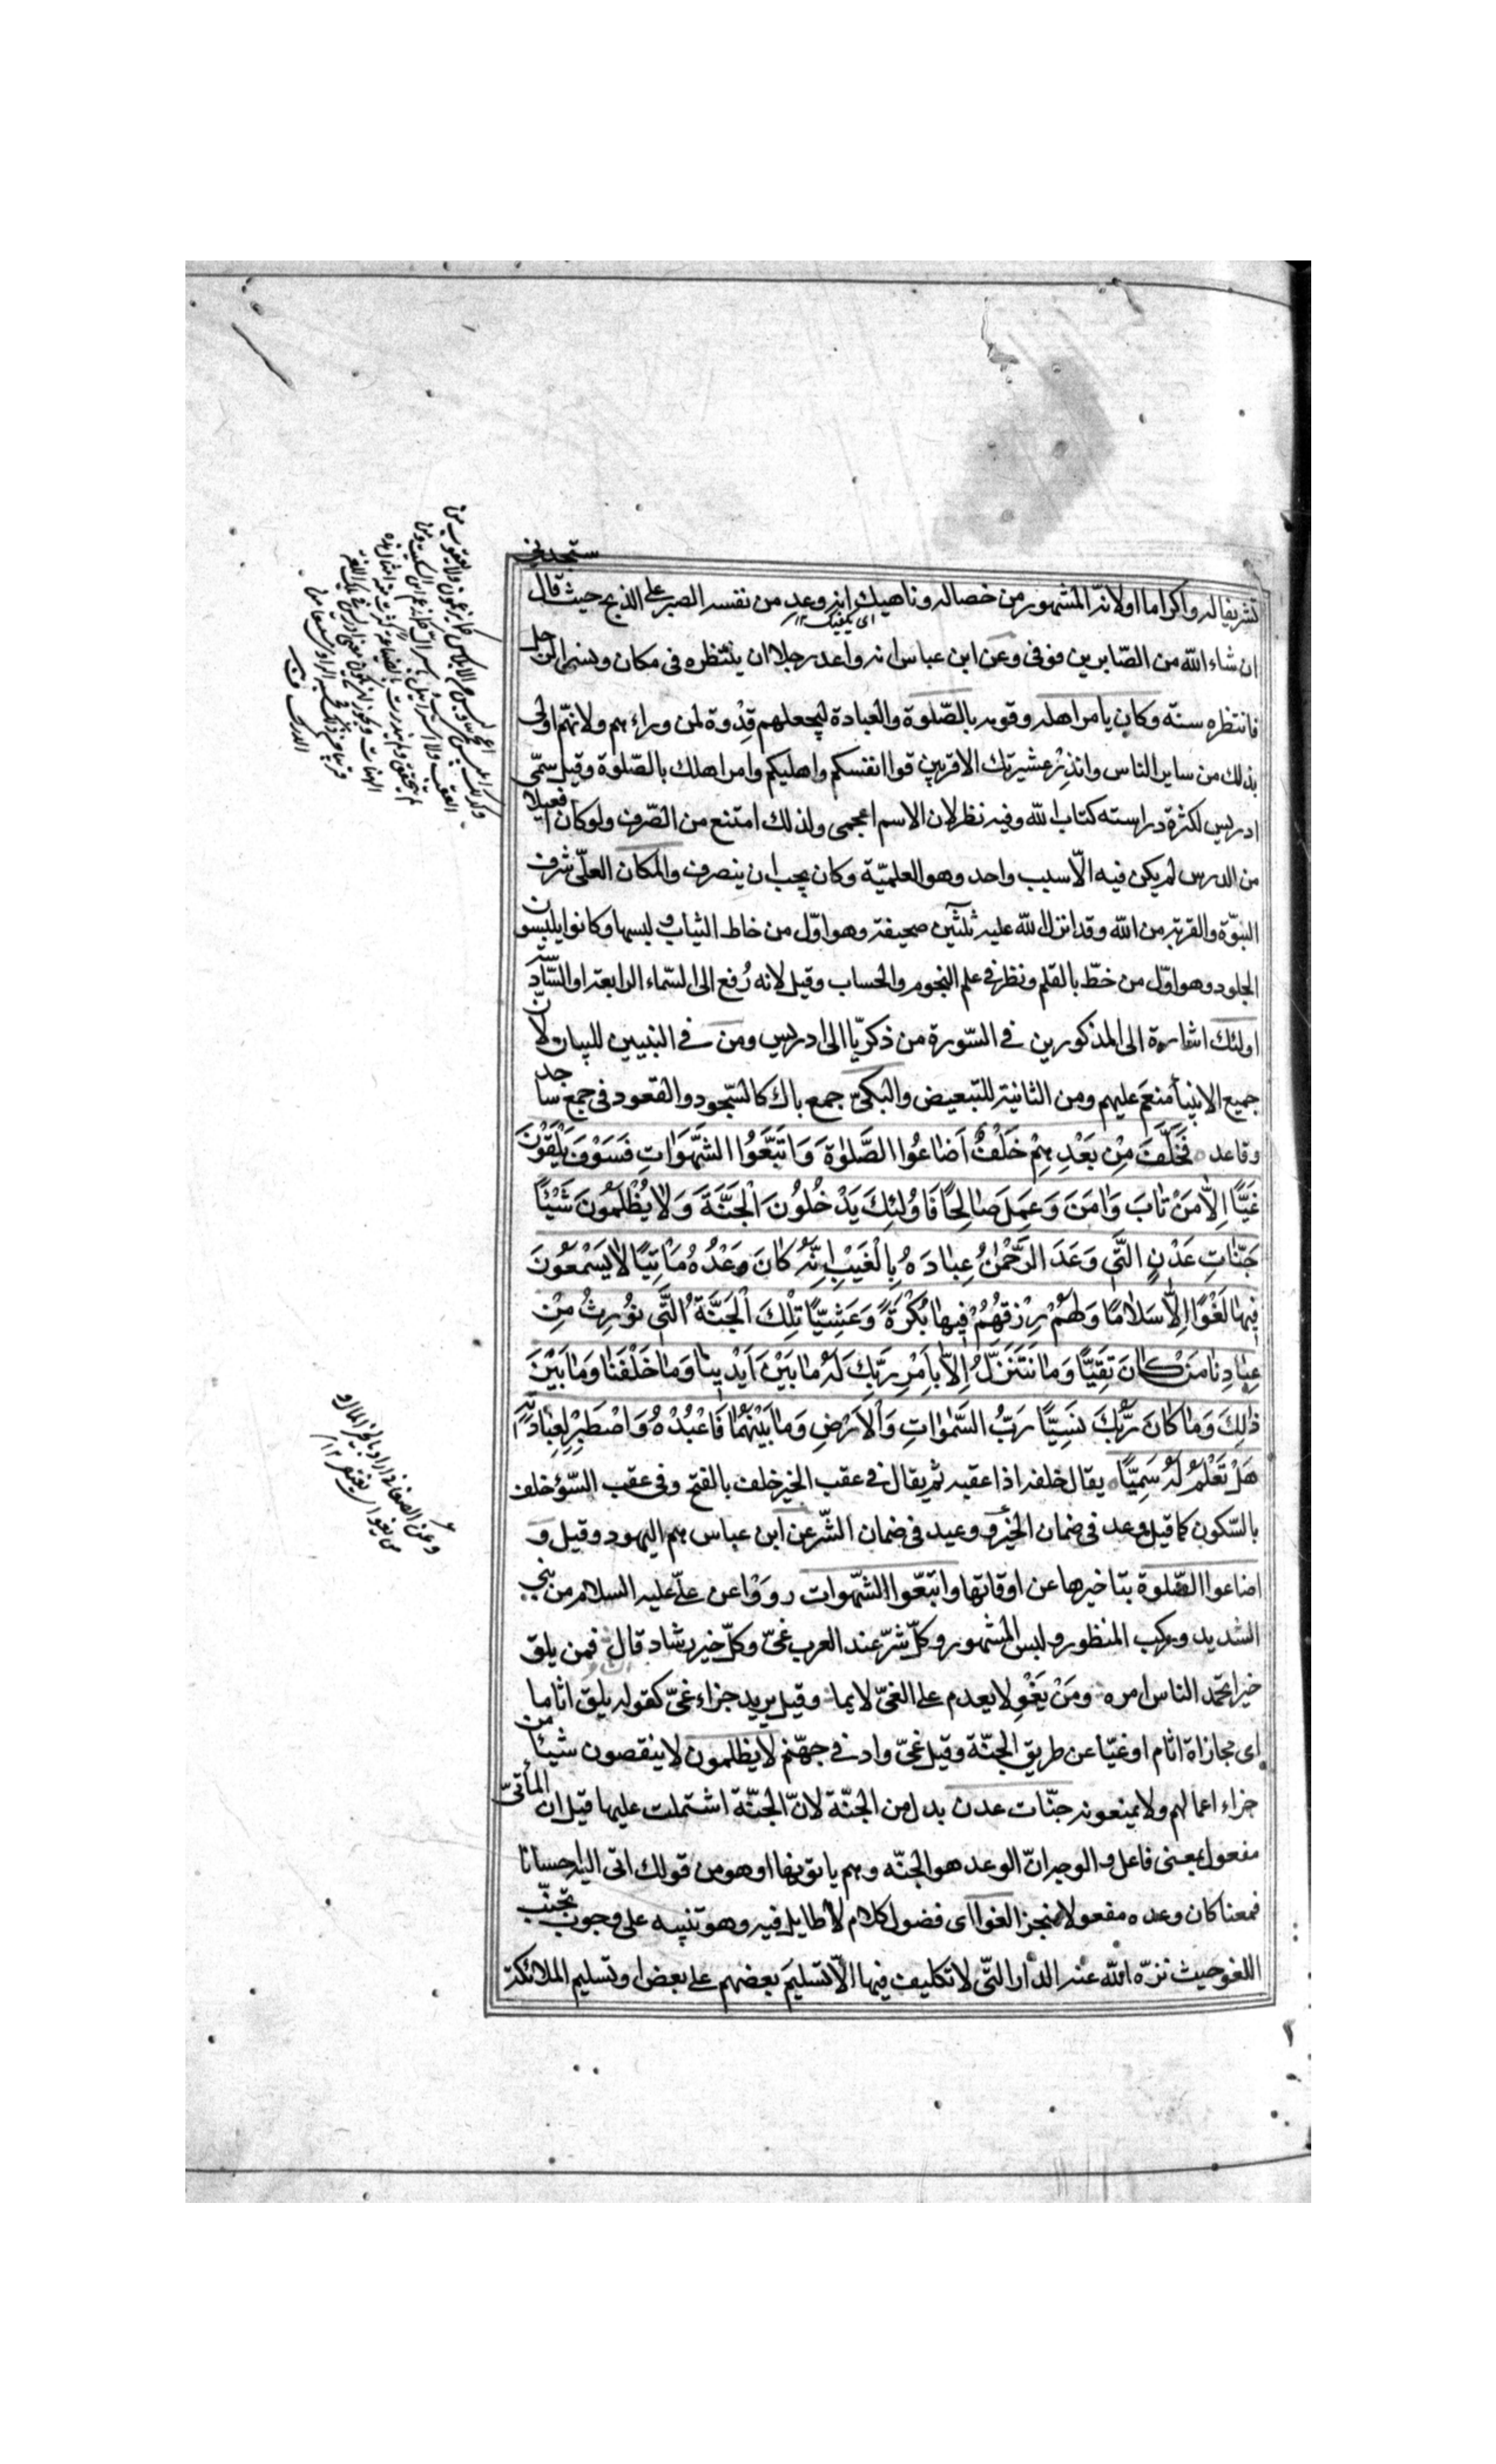 تشريفا له واكراما اولانه المشهور من خصاله وناهيك انه وعد من نفسه الصبر على الذبح حيث قال ستجدني
اى يكفيك ١٢
ان شاء الله من الصّابرين فوفى وعن ابن عباس انه واعد رجلا ان ينتظره فى مكان ونسى الرجل
فانتظره سنة وكان يامر اهله وقومه بالصّلوة والعبادة ليجعلهم قِدْوة لمن وراءهم ولانهّم اولى
بذلك من ساير الناس وانذِرْ عشيرتك الاقربين قوا انفسكم واهليكم وامر اهلك بالصّلوة وقيل سمّى
ادريس لكثرة دراسته كتاب الله وفيه نظر لان الاسم اعجمى ولذلك امتنع من الصّرف ولو كان افعيلا
من الدرس لم يكن فيه الّا سبب واحد وهو العلميّة وكان يجب ان ينصرف والمكان العلّى شرف
النبوّة والقربة من الله وقد انزل الله عليه ثلثين صحيفة وهو اوّل من خاط الثياب ولبسها وكانوا يلبسون
الجلود وهو اوّل من خطّ بالقلم ونظر فى علم النجوم والحساب وقيل لانه رُفع الى السّماء الرابعة او السّادسة
اولئك اشارة الى المذكورين فى السّورة من ذكريّا الى ادريس ومن فى النبيين للبيان لانّ
جميع الانبيأ منعَم عليهم ومن الثانية للتبعيض والبكىّ جمع باك كالسّجود والقعود فى جمع ساجد
وقاعد فَخَلَفَ مِنْ بَعْدِهِمْ خَلْفٌ اَضاعُوا الصَّلوٰةَ وَاتَّبَعُوا الشَّهَوَاتِ فَسَوْفَ يَلْقَوْنَ
غَيًّا اِلاَّ مَنْ تابَ وَاٰمَنَ وَعَمِلَ صالِحًا فَاُولٰئِكَ يَدْخُلُونَ الْجَنَّةَ وَلا يُظْلَمُونَ شَيْئًا
جَنّاتِ عَدْنٍ الَّتى وَعَدَ الرَّحْمٰنُ عِبادَهُ بِالْغَيْبِ اِنَّهُ كانَ وَعْدُهُ مَاْتِيًّا لا يَسْمَعُونَ
فِيها لَغْوًا اِلاّ سَلامًا وَلَهُمْ رِزْقُهُمْ فِيها بُكْرَةً وَعَشِيًّا تِلْكَ الْجَنَّةُ الَّتى نُورِثُ مِنْ
عِبادِنا مَنْ كانَ تَقِيًّا وَما نَتَنَزَّلُ اِلاّ بِاَمْرِ رَبِّكَ لَهُ ما بَيْنَ اَيْدِينا وَما خَلْفَنا وَما بَيْنَ
ذٰلِكَ وَما كانَ رَبُّكَ نَسِيًّا رَبُّ السَّمٰواتِ وَالْاَرْضِ وَما بَيْنَهُما فَاعْبُدْهُ وَاصْطَبِرْ لِعِبادَتِهِ
هَلْ تَعْلَمُ لَهُ سَمِيًّا يقال خلفه اذا عقبه ثم يقال فى عقب الخير خلف بالفتح وفى عقب السّؤ خلف
بالسّكون كما قيل وعد فى ضمان الخير ووعيد فى ضمان الشّر عن ابن عباس هم اليهود وقيل و
اضاعوا الصّلوة بتاخيرها عن اوقاتها واتبّعوا الشهوات رووا عن علّى عليه السلام من بنى
الشديد وركب المنظور ولبس المشهور وكلّ شرّ عند العرب غىّ وكلّ خير رشاد قال فمن يلق
خيرا يحمد الناس امره ومَنْ يَغْوِ لا يعدم على الغىّ لايما وقيل يريد جزاء غىّ كقوله يلق اثاما
اى مجازاة اثام او غيّا عن طريق الجنّة وقيل غىّ واد فى جهنّم لا يظلمون لا ينقصون شيئا من
جزاء اعمالهم ولا يمنعونه جنّات عدن بدل من الجنّة لانّ الجنّة اشتملت عليها قيل ان المأتىّ
مفعول بمعنى فاعل والوجه انّ الوعد هو الجنّه وهم ياتونها او هو من قولك اتى اليه احسانا
فمعنا كان وعده مفعولا منجزا لغوا اى فضول كلام لا طايل فيه وهو تنبيه على وجوب تجنّب
اللغو حيث نزّه الله عنه الدار الّتى لا تكليف فيها الّا تسليم بعضهم على بعض او تسليم الملائكة